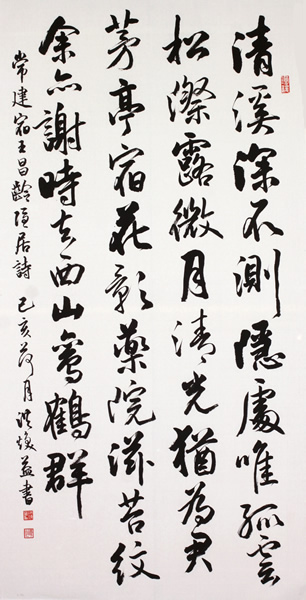 清溪深不測隱處唯孤雲
松際露微月清光猶為君
茅亭宿花影藥院滋苔紋
余亦謝時去西山鸞鶴群
常建宿王昌齡隱居詩 己亥荷月洪煥益書